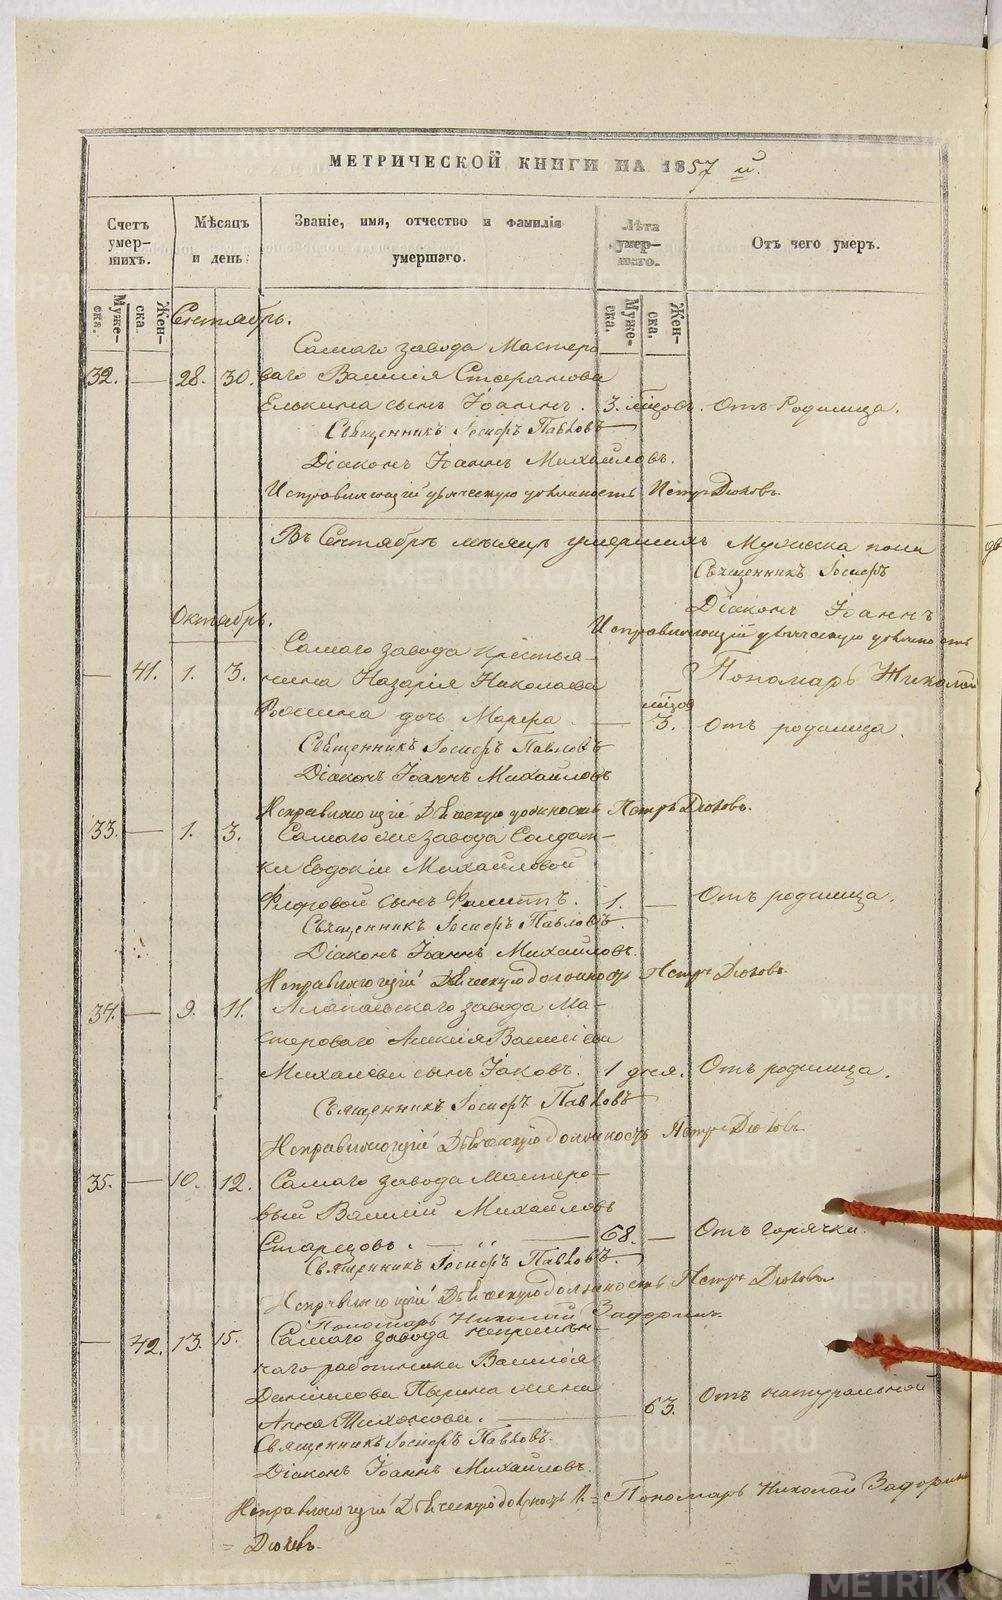 МЕТРИЧЕСКОЙ КНИГИ НА 1857 й.
Счетъ умер-шихъ.
Мѣсяцъ и день
Званіе, имя, отчество и фамилія умершаго.
Лѣта умер-шаго.
Отъ чего умеръ.
Муже-ска.
Жен-ска.
Муже-ска.
Жен-ска.
Сентябрь.
Самаго завода Мастеро
32. — 28. 30. ваго Василія Стефанова
Елькина сынъ Іоаннъ. 3. мѣсяцовъ. Отъ Родимца.
Священникъ Іосифъ Павловъ
Діаконъ Іоаннъ Михайловъ.
Исправляющій дьяческую должность Петръ Дюковъ.
Въ Сентябрѣ мѣсяцѣ умершихъ Мужеска пола
Священникъ Іосифъ
Діаконъ Іоаннъ
Октябрь.
Исправляющій дьяческую должность
Самаго завода крестья-
— 41. 1. 3. нина Назарія Николаева
Пономарь Николай
дочь Марфа — 3. Отъ родимца.
Священникъ Іосифъ Павловъ
Діаконъ Іоаннъ Михайловъ
Исправляющій Дьяческую должность Петръ Дюковъ.
33. — 1. 3. Самаго же завода Солдат-
ки Евдокіи Михайловой
сынъ Филиппъ. 1. — Отъ родимца.
Священникъ Іосифъ Павловъ.
Діаконъ Іоаннъ Михайловъ.
Исправляющій Дьяческую должность Петръ Дюковъ.
34. — 9. 11. Алапаевскаго завода Ма-
стероваго Алексія Васильева
сынъ Іаковъ. 1 дня. Отъ родимца.
Священникъ Іосифъ Павловъ
Исправляющій Дьяческую должность Петръ Дюковъ
35. — 10. 12. Самаго завода мастеро-
вый Василій Михайловъ
Старцовъ. — 68. — Отъ горячки.
Священникъ Іосифъ Павловъ.
Исправляющій Дьяческую должность Петръ Дюковъ
Пономарь Николай Задоринъ.
— 42. 13. 15. Самаго завода непремѣн-
наго работника Василія
Данилова жена
Анна Тихонова. — 63. Отъ натуральной
Священникъ Іосифъ Павловъ.
Діаконъ Іоаннъ Михайловъ.
Исправляющій Дьяческую должность П. = Пономарь Николай Задоринъ
= Дюковъ.